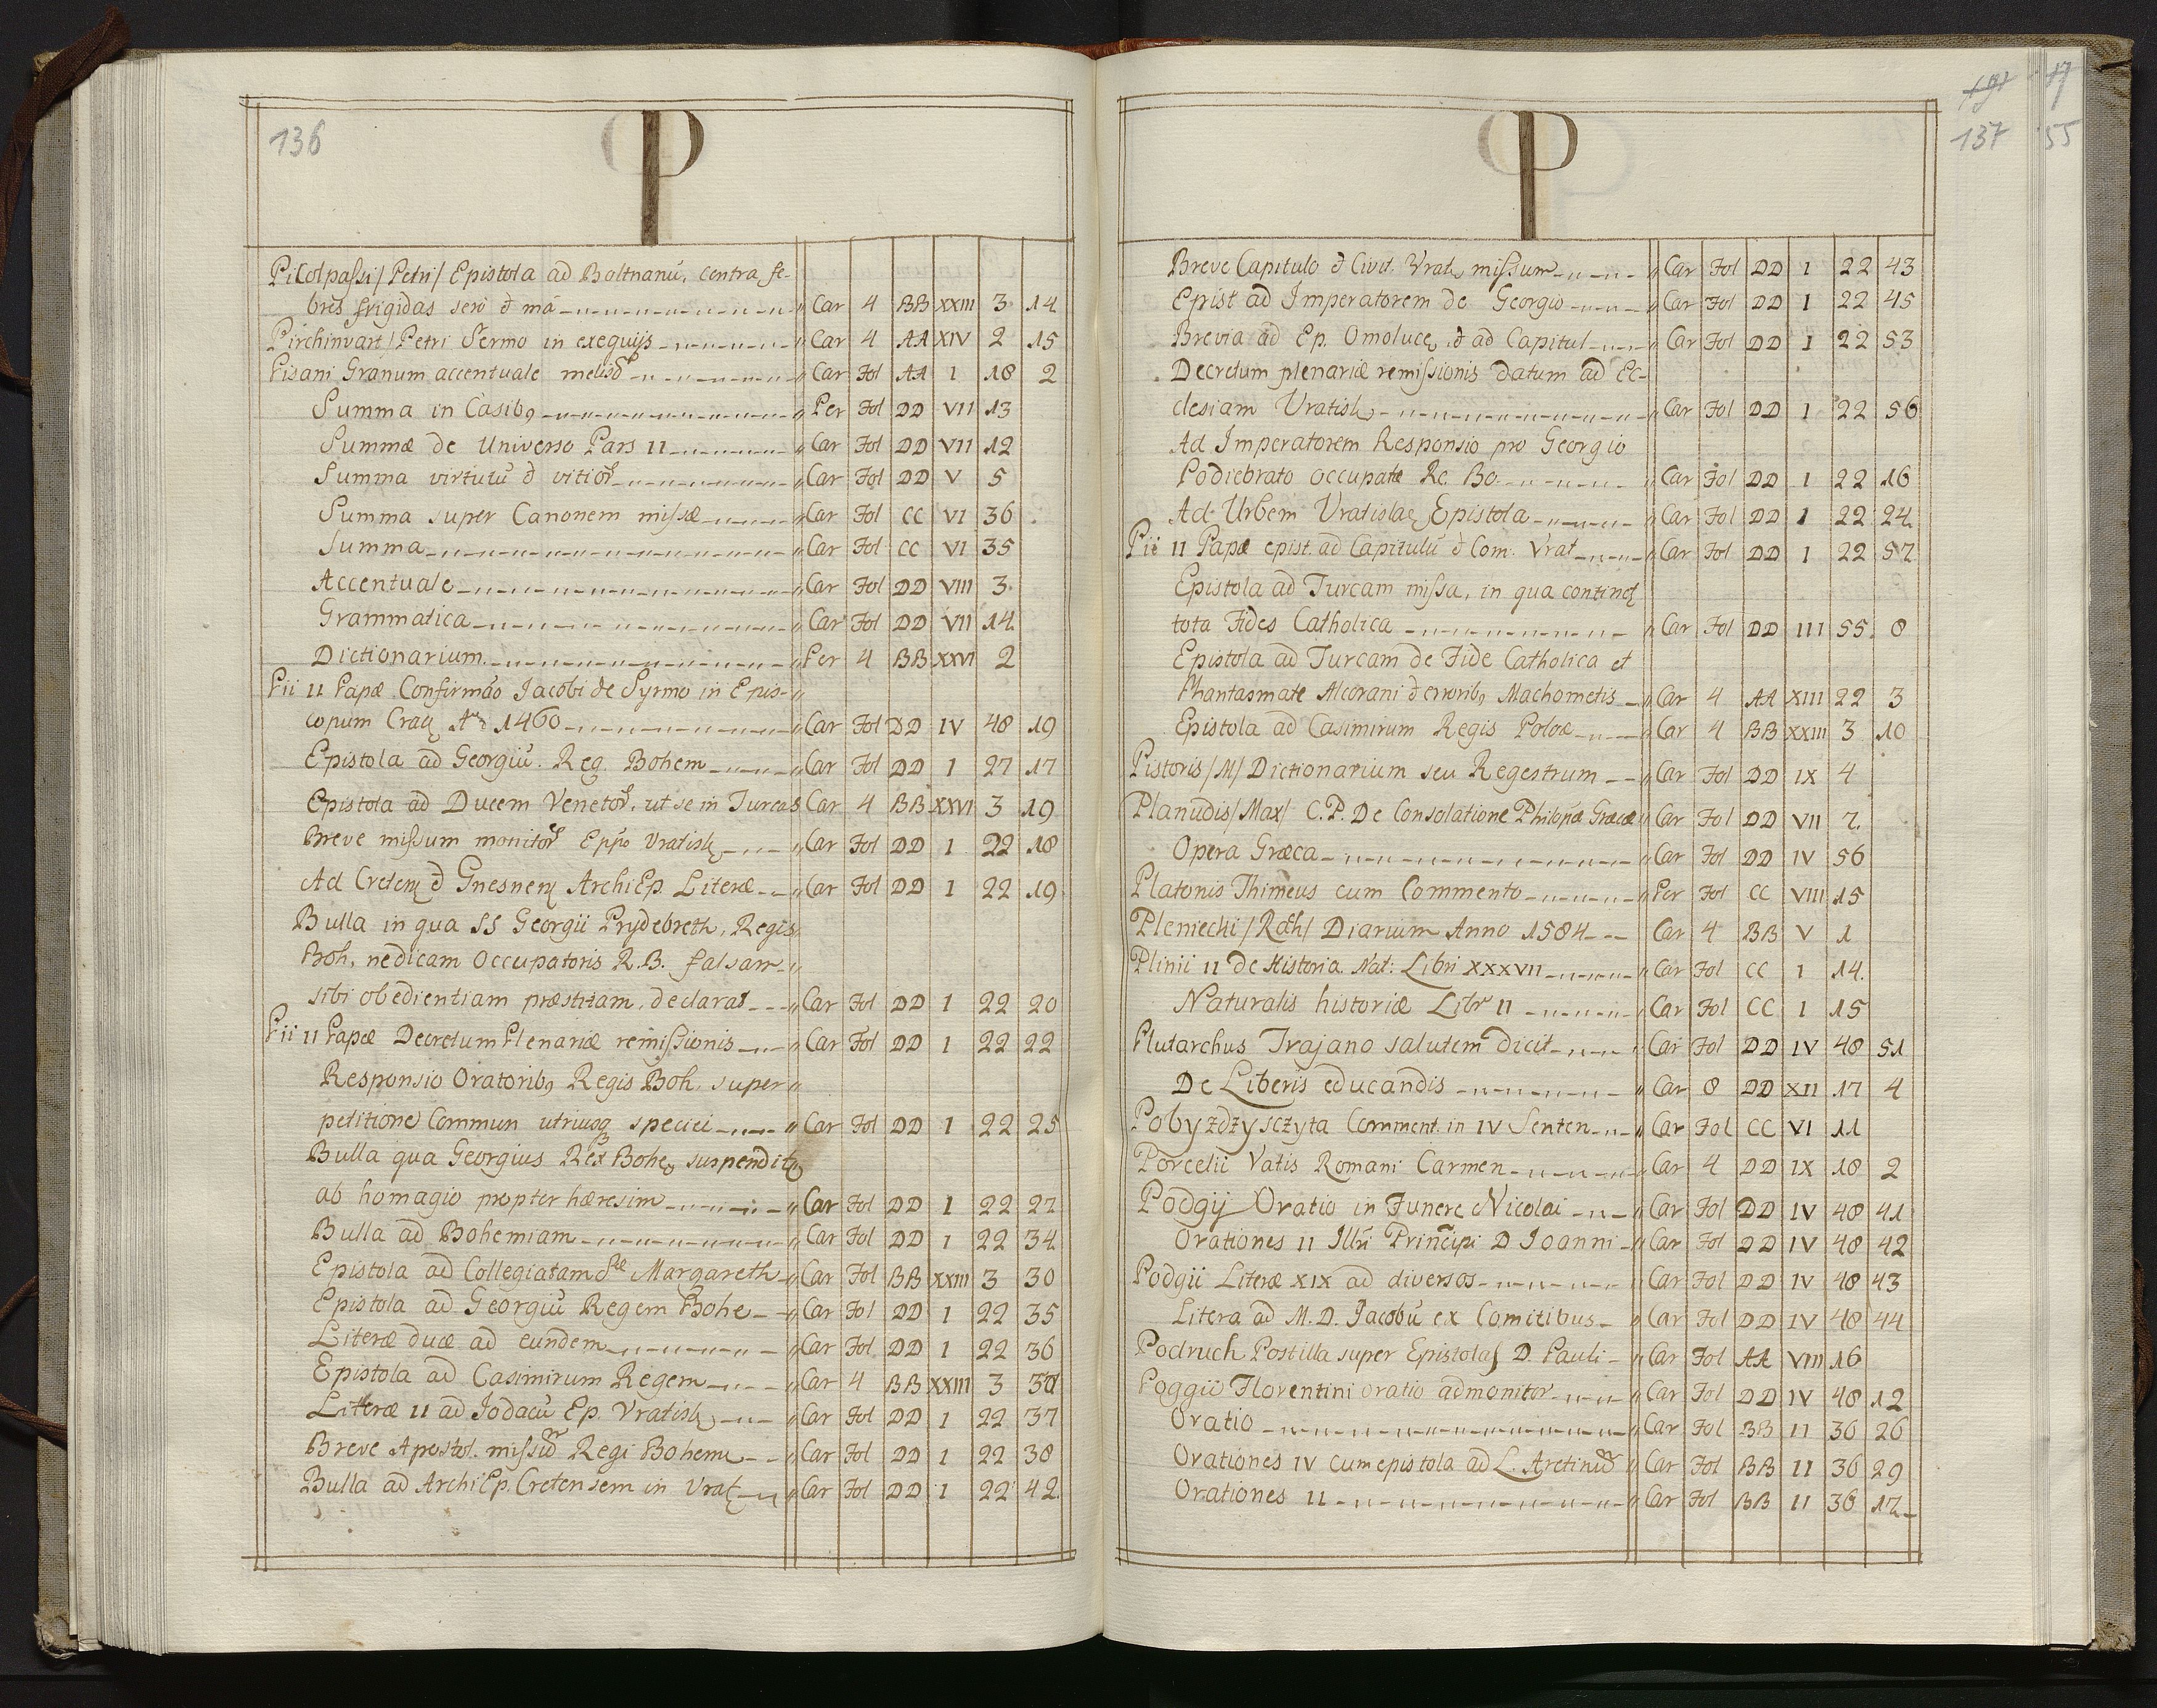 136
P
Picolpassi/Petri/ Epistola ad Baltnanū, contra fe-
bres frigidas seri & mā „ Car 4 BB XXIII 3 14
Pirchinvart/Petri Sermo in exequijs „ Car 4 AA XIV 2 15
Pisani Granum accentuale „ Car Fol AA I 18 2
Summa in Casibꝯ „ Per Fol DD VII 13
Summæ de Universo Pars II „ Car Fol DD VII 12
Summa virtutū & vitioꝝ „ Car Fol DD V 5
Summa super Canonem missæ „ Car Fol CC VI 36
Summa „ Car Fol CC VI 35
Accentuale „ Car Fol DD VIII 3
Grammatica „ Car Fol DD VII 14
Dictionarium „ Per 4 BB XXVI 2
Pii II Papæ Confirmāo Jacobi de Syrmo in Epis-„
copum Craq Aō 1460 „ Car Fol DD IV 48 19
Epistola ad Georgiū Reg. Bohem „ Car Fol DD I 27 17
Epistola ad Ducem Venetoꝝ, ut se in Turcas Car 4 BB XXVI 3 19
Breve missum monitoꝝ Eppo Vratisl „ Car Fol DD I 22 18
Ad Cretenꝭ & Gnesnenꝭ ArchiEp. Literæ „ Car Fol DD I 22 19
Bulla in qua SS Georgii Prydebreth, Regis
Boh, nedicam Occupatoris R.B. falsam „
sibi obedientiam præstitam, declarat „ Car Fol DD I 22 20
Pii II Papæ Decretum Plenariæ remissionis „ Car Fol DD I 22 22
Responsio Oratoribꝯ Regis Boh. super „
petitione Commun utriusqꝫ speciei „ Car Fol DD I 22 25
Bulla qua Georgius Rex Bohe, suspendit
ab homagio propter hæresim „ Car Fol DD I 22 27
Bulla ad Bohemiam „ Car Fol DD I 22 34
Epistola ad Collegiatam Stæ Margareth „ Car Fol BB XXIII 3 30
Epistola ad Georgiū Regem Bohe „ Car Fol DD I 22 35
Literæ duæ ad eundem „ Car Fol DD I 22 36
Epistola ad Casimirum Regem „ Car 4 BB XXIII 3
Literæ II ad Jodacū Ep. Vratisl „ Car Fol DD I 22 37
Breve Apostol. missū Regi Bohem „ Car Fol DD I 22 38
Bulla ad ArchiEp. Cretensem in Vrat „ Car Fol DD I 22 42
137 55
P
Breve Capitulo & Civit. Vrat missum „ Car Fol DD I 22 43
Epist ad Imperatorem de Georgio „ Car Fol DD I 22 45
Brevia ad Ep. Omoluce, & ad Capitul „ Car Fol DD I 22 53
Decretum plenariæ remissionis datum ad Ec-
clesiam Vratisl „ Car Fol DD I 22 56
Ad Imperatorem Responsio pro Georgio
Podiebrato occupate Re. Bo. „ Car Fol DD I 22 16
Ad Urbem Vratislae Epistola „ Car Fol DD I 22 24
Pii II Papæ epist. ad Capitulū & Com. Vrat „ Car Fol DD I 22 57
Epistola ad Turcam missa, in qua continet
tota Fides Catholica „ Car Fol DD III 55 8
Epistola ad Turcam de Fide Catholica et
Phantasmate Alcorani & erroribꝯ Machometis „ Car 4 AA XIII 22 3
Epistola ad Casimirum Regis Poloæ „ Car 4 BB XXIII 3 10
Pistoris/M/ Dictionarium seu Regestrum „ Car Fol DD IX 4
Planudis/Max/ C.P. De Consolatione Philopæ Græcæ „ Car Fol DD VII 7
Opera Græca „ Car Fol DD IV 56
Platonis Thimeus cum Commento „ Per Fol CC VIII 15
Pleniechi/Rdh/ Diarium Anno 1584 Car 4 BB V 1
Plinii II de Historia Nat: Libri XXXVII „ Car Fol CC I 14
Naturalis historiæ Libr II „ Car Fol CC I 15
Plutarchus Trajano salutem dicit „ Car Fol DD IV 48 51
De Liberis educandis „ Car 8 DD XII 17 4
Pobyzdzyszczyta Comment. in IV Senten „ Car Fol CC VI 11
Porcelii Vatis Romani Carmen „ Car 4 DD IX 18 2
Podgij Oratio in Funere Nicolai „ Car Fol DD IV 48 41
Orationes II Illri Principi D Joanni „ Car Fol DD IV 48 42
Podgii Literæ XIX ad diversos „ Car Fol DD IV 48 43
Litera ad M. D. Jacobū ex Comitibus „ Car Fol DD IV 48 44
Podruch Postilla super Epistolas D. Pauli „ Car Fol AA VIII 16
Poggii Florentini oratio admonitor „ Car Fol DD IV 48 12
Oratio „ Car Fol BB II 36 26
Orationes IV cum epistola ad L. Aretinū „ Car Fol BB II 36 29
Orationes II „ Car Fol BB II 36 17